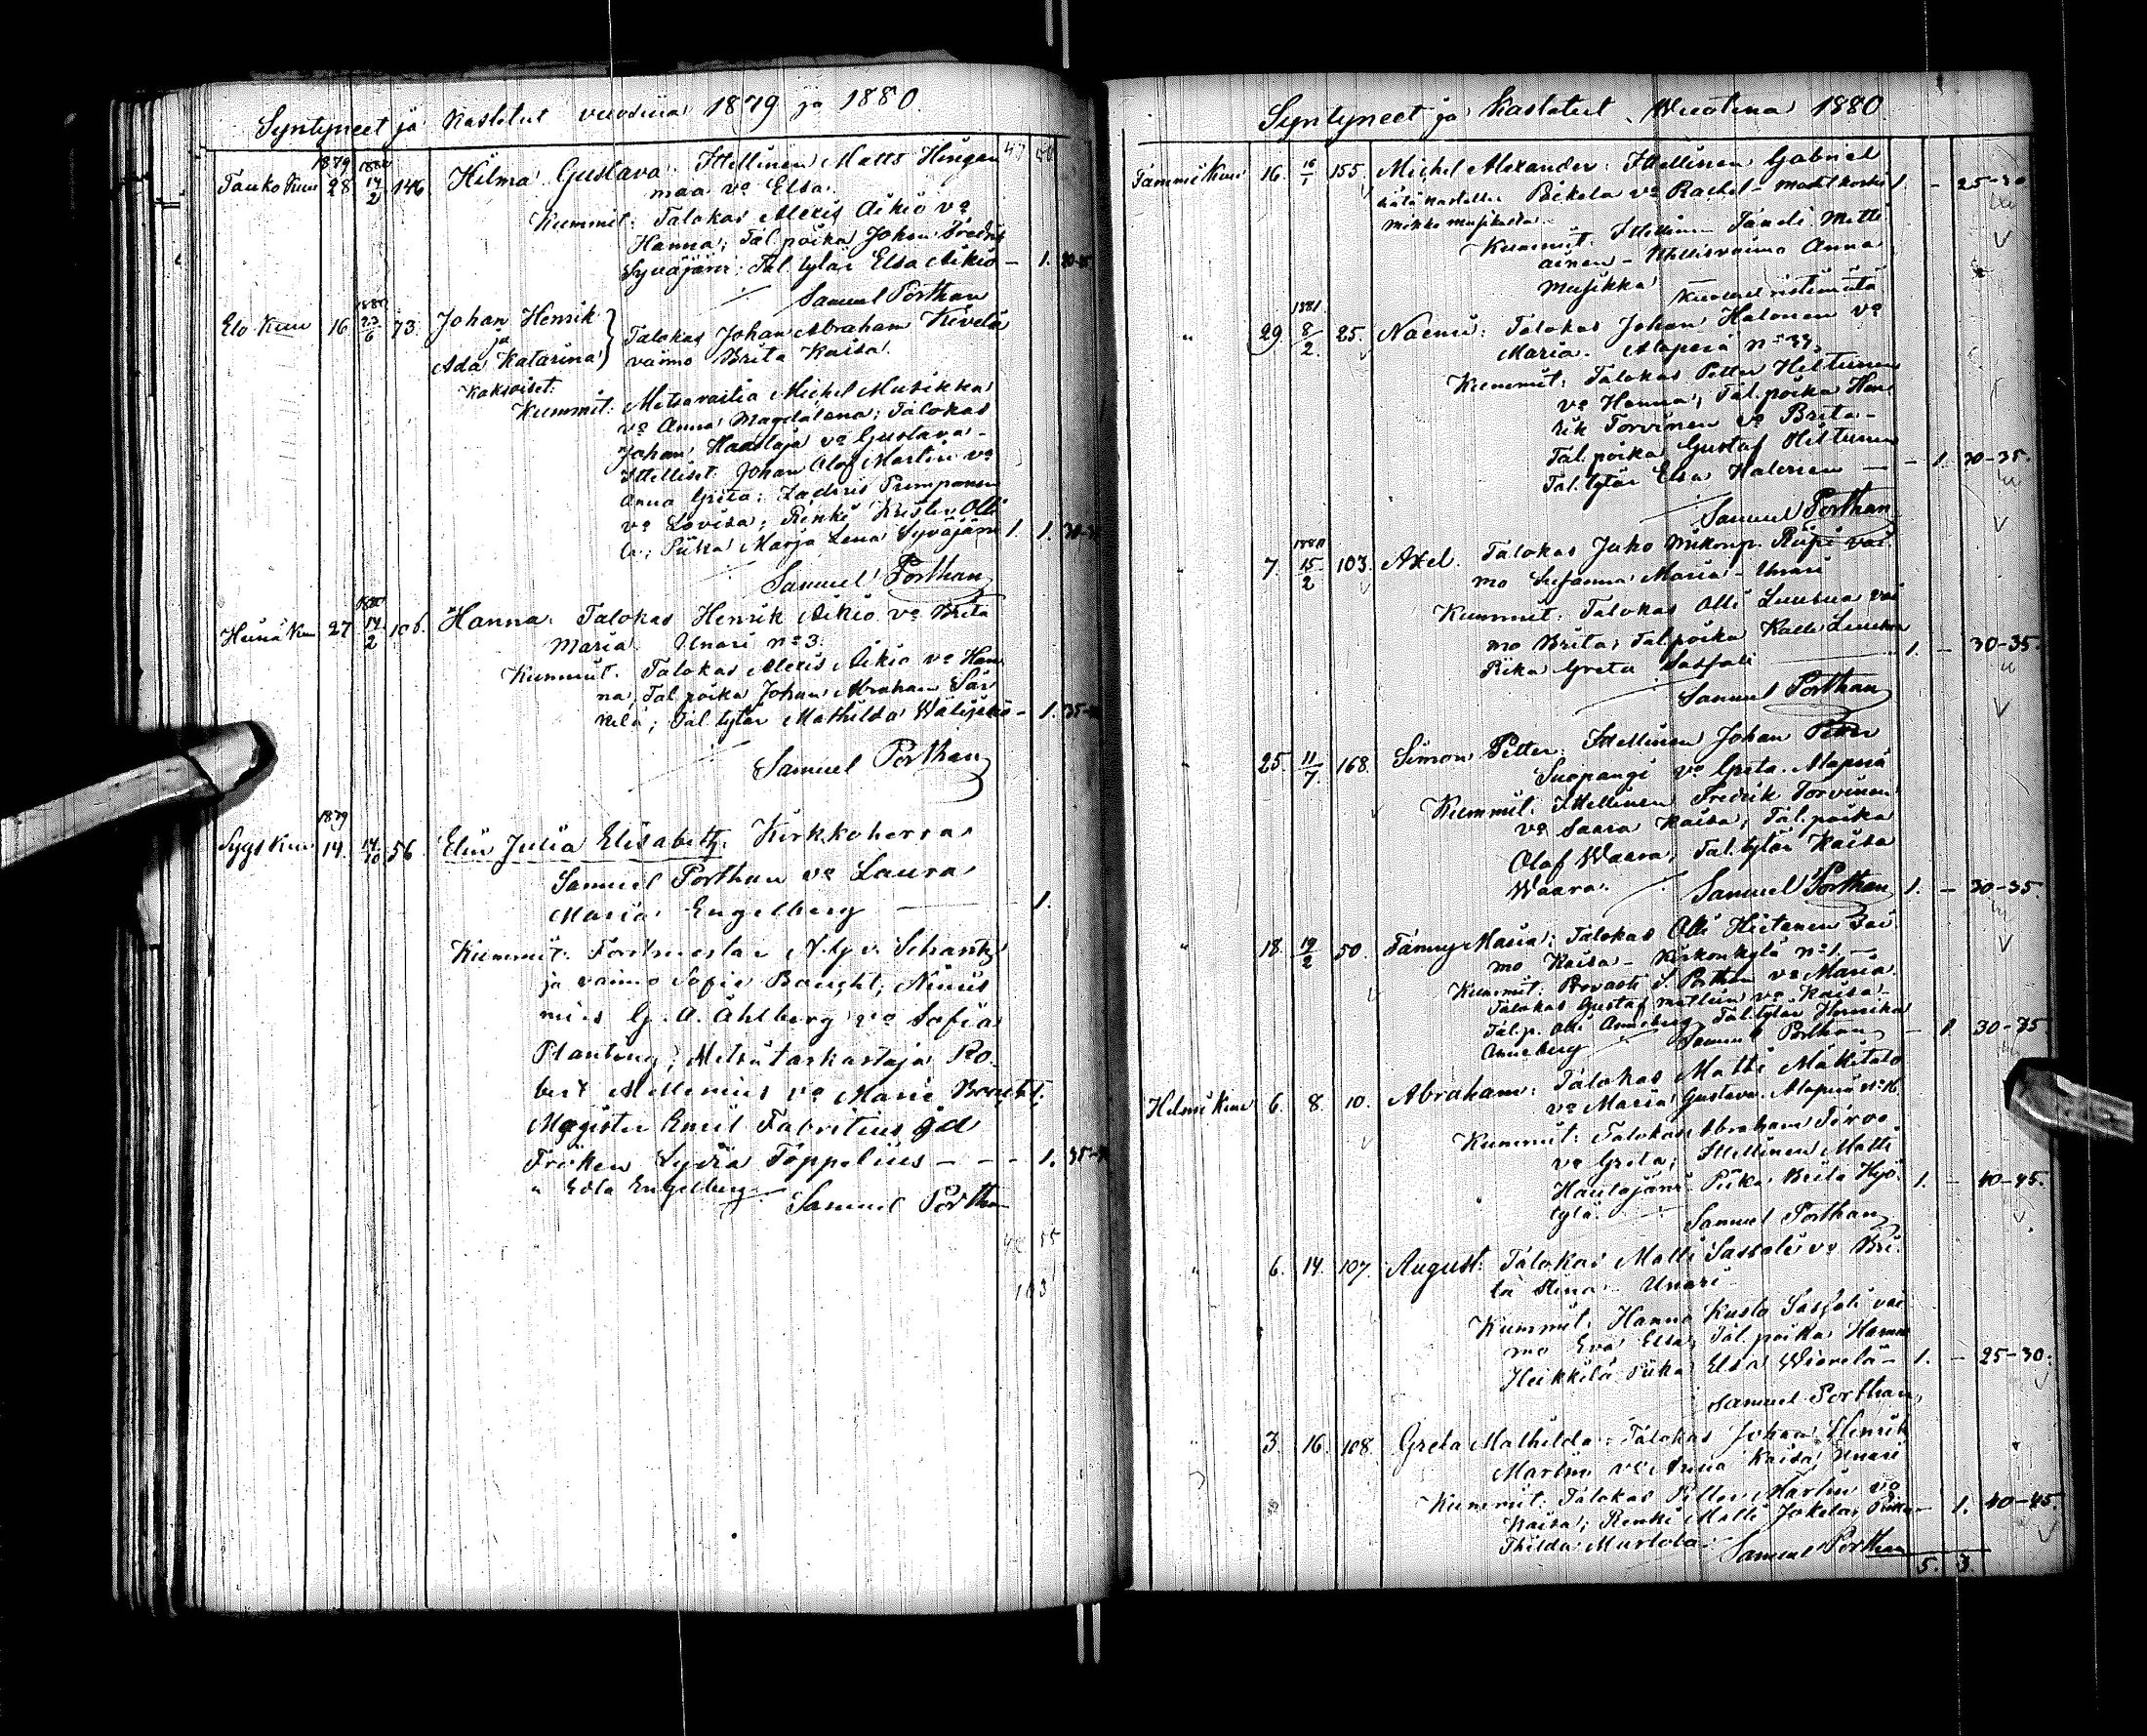 Syntyneet ja kastetut vuosina 1879 ja 1880.
1879 1880 47 50
Tauko Kuu 28 14/2 146 Hilma Gustava: Ittellinen Matts Hingan
maa vo Elsa.
Kummit: Talokas Alexis Aikio vo
Hanna; Tal. poika Johan Fredrik
Syväjärvi; Tal. tytär Elsa Aikio – 1.
Samuel Porthan
1880
Elo Kuu 16 23/6 73. Johan Henrik
ja
Ada Katarina
Talokas Johan Abraham Kivelä
vaimo Brita Kaisa.
Kaksoiset.
Kummit: Metsävartia Michel Musikka
vo Anna Magdalena; Talokas
Johan Haataja vo Gustava –
Ittelliset Johan Olof Martin vo
Anna Greta; Pumpanen
vo Lovisa; Renki Krister Olli
la; Piika Marja Lena Syväjärvi 1. 1.
Samuel Porthan
1880
Heinä Kuu 27 14/2 106. Hanna: Talokas Henrik Aikio vo Brita
Maria Unari no 3.
Kummit: Talokas Alexis Aikio vo Han
na; Tal. poika Johan Abraham Sär
kelä; Tal. tytär Mathilda – 1.
Samuel Porthan
1879
Sygs Kuu 14. 14/10 56 Elin Julia Elisabeth: Kirkkoherra
Samuel Porthan vo Laura
Maria Engelberg 1.
Kummit: Forstmestar v. Schantz
ja vaimo Sofie Bought; Nimis
mies G. A. Ahlberg vo Sofia
Planting; Metsätarkastaja Ro-
bert Mellenius vo Marie Bought;
Magister Emil Fabritius
Fröken Lydia Toppelius – – – 1.
" Edla Engelberg
Samuel Porthan
55
103
Syntyneet ja Kastetut Wuotena 1880.
Tammi Kuu 16. 16/1 155. Michel Alexander: Ittellinen Gabriel
Poikela vo Rachel – 1. – 25–30
Mikko Musikalta.
Kummit: Ittellinen Matti
ainen – Ittellisvaimo Anna
Musikka
1881
" 29. 8/2. 25. Naemi: Talokas Johan Halonen vo
Maria. Alaperä no 33.
Kummit: Talokas Petter Hiltunen
vo Hanna; Tal. poika Hen
rik Torvinen vo Brita –
Tal. poika Gustaf Hiltunen
Tal. tytär Elsa Halonen – – 1. 30–35.
Samuel Porthan
1880
" 7. 15/2 103. Axel. Talokas Juho Mikonp. Riipi vai
mo Susanna Maria – Unari
Kummit: Talokas Olli Luusua vai
mo Brita; Tal. poika Kalle Luusua
Piika Greta Sassali 1. – 30–35.
Samuel Porthan
" 25. 11/7. 168. Simon Petter: Ittellinen Johan Petter
Suopangi vo Greta. Alaperä
Kummit: Ittellinen Fredrik Torvinen
vo Saara Kaisa; Tal. poika
Olaf Waara; Tal. tytär Kaisa
Waara. Samuel Porthan 1. – 30–35.
" 18. 19/2 50. Fanny Maria: Talokas Olli Hietanen vai
mo Kaisa – Kirkonkylä no 1. –
Kummit: Rovasti S. Porthan vo Maria
Talokas Gustaf Mattlin vo Kaisa –
Tal. p. Olli Anneberg, Tal. tytär Henrika
Anneberg Samuel Porthan – 1. 30–35
Helmi Kuu 6. 8. 10. Abraham: Talokas Matti Mäkitalo
vo Maria Gustava. Alaperä
Kummit: Talokas Abraham Tervo
vo Greta; Ittellinen Matti
Hautajärvi. Piika Brita Hyö 1. – 40–45.
tylä. Samuel Porthan
" 6. 14. 107. August: Talokas Matti Sassali vo Bri
ta Stina Unari
Kummit: Hannu Kusta Sassali vai
mo Eva Elsa; Tal. poika Hannu
Heikkilä Piika Elsa Wierelä – 1. – 25–30.
Samuel Porthan
" 3. 16. 108. Greta Mathilda: Talokas Johan Henrik
Martin vo Anna Kaisa; Unari
Kummit: Talokas Petter Martin vo
Kaisa; Renki Matti Jokela; Piika – 1. 40–45
Thilda Murtola. Samuel Porthan
5. 3.